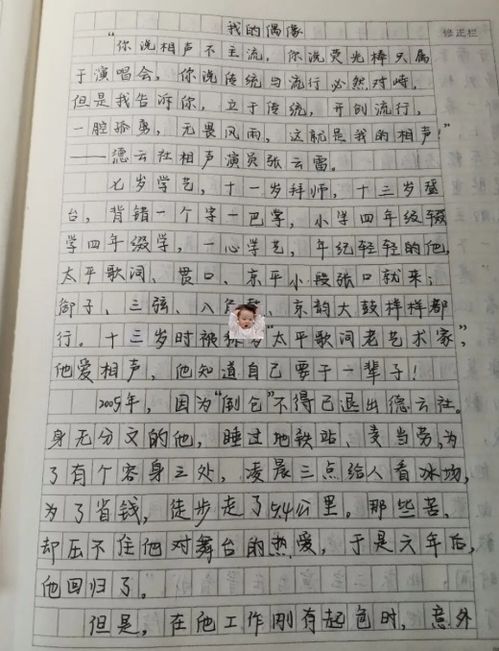 我的偶像
修正栏
“你说相声不主流，你说荧光棒只属
于演唱会，你说传统与流行必然对峙，
但是我告诉你，立于传统，开创流行，
一腔孤勇，无畏风雨，这就是我的相声！”
——德云社相声演员张云雷。
七岁学艺，十一岁拜师，十三岁登
台，背错一个字一巴掌，小学四年级辍
学四年级辍学，一心学艺，年纪轻轻的他，
太平歌词、贯口、京平小段张口就来；
御子、三弦、八 京韵大鼓样样都
行。十三岁时被称 “太平歌词老艺术家”，
他爱相声，他知道自己要干一辈子！
2005年，因为“倒仓”不得已退出德云社。
身无分文的他，睡过地铁站、麦当劳，为
了有个容身之处，凌晨三点给人看冰场，
为了省钱，徒步走了44公里。那些苦，
却压不住他对舞台的热爱，于是六年后，
他回归了。
但是，在他工作刚有起色时，意外